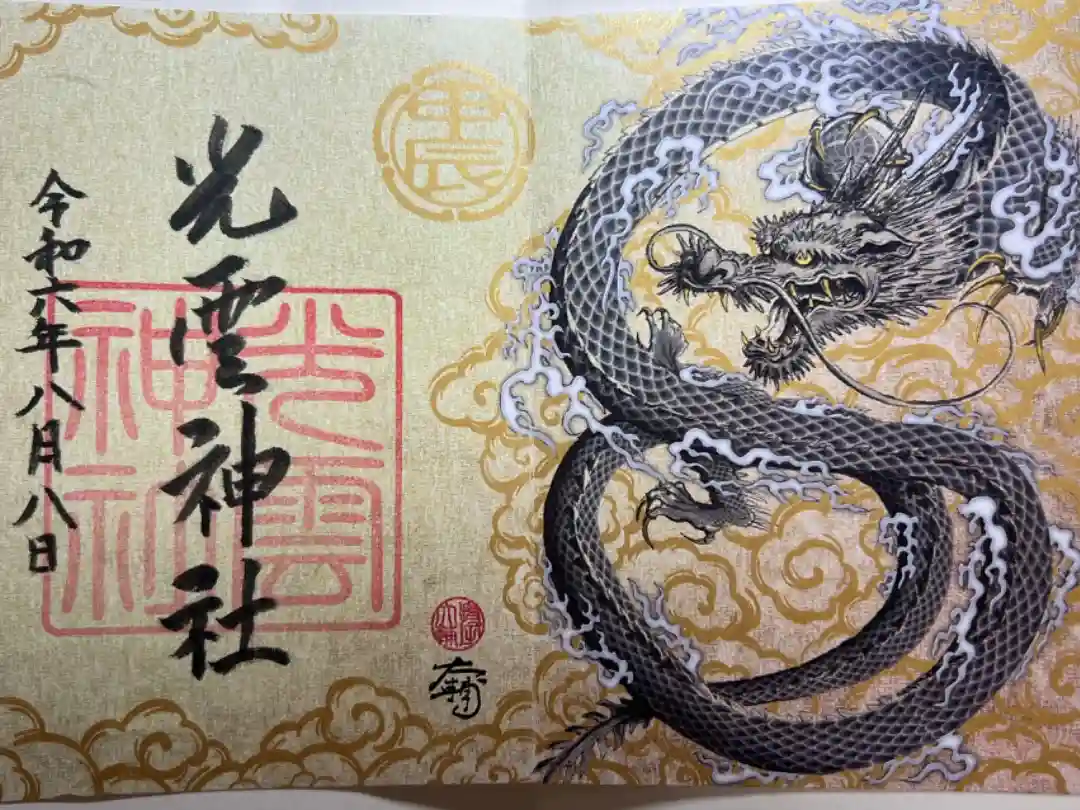 辰
光雲神社
光雲神社
令和六年八月八日